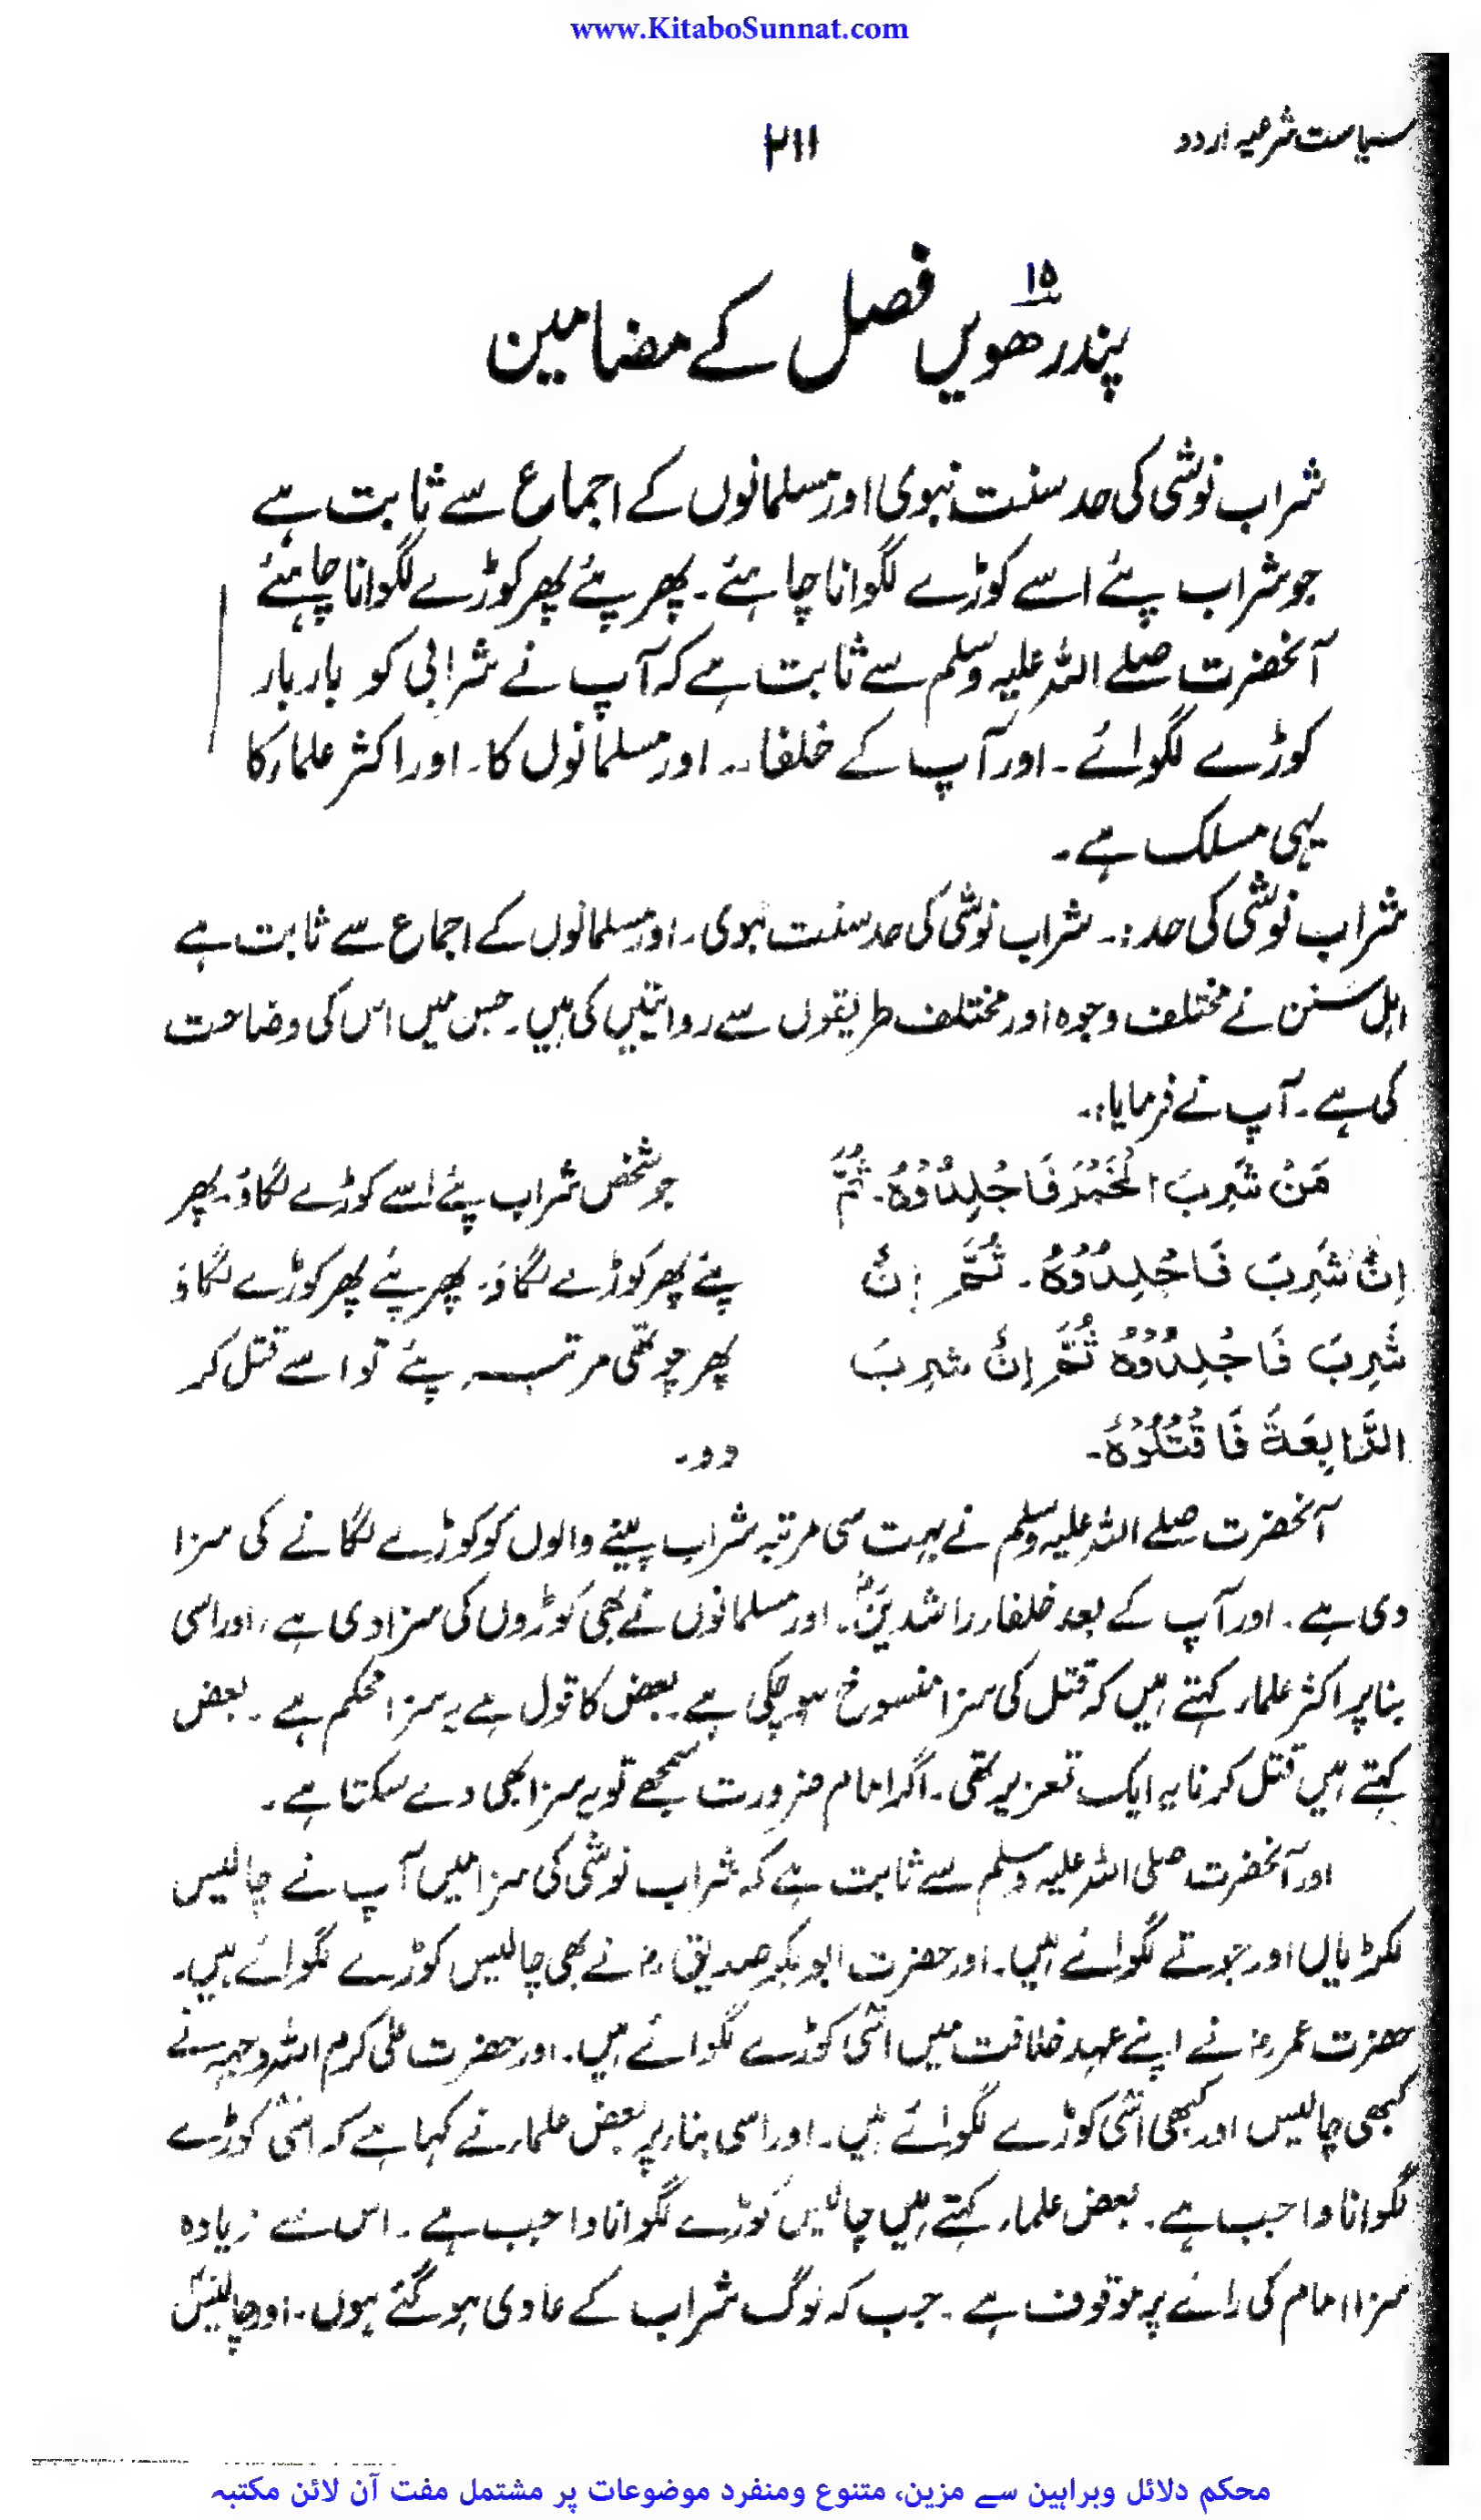 www.KitaboSunnat.com
سیاست شرعیہ اردو
۲۱۱
۱۵
پندرھویں فصل کے مضامین
شراب نوشی کی حد سنت نبوی اور مسلمانوں کے اجماع سے ثابت ہے
جو شراب پئے اسے کوڑے لگوانا چاہئے۔ پھر پئے پھر کوڑے لگوانا چاہئے
آنحضرت صلے اللہ علیہ وسلم سے ثابت ہے کہ آپ نے شرابی کو بار بار
کوڑے لگوائے۔ اور آپ کے خلفاء۔ اور مسلمانوں کا۔ اور اکثر علماء کا
یہی مسلک ہے۔
شراب نوشی کی حد:۔ شراب نوشی کی حد سنت نبوی۔ اور مسلمانوں کے اجماع سے ثابت ہے
اہل سنن نے مختلف وجوہ اور مختلف طریقوں سے روایتیں کی ہیں۔ جس میں اس کی وضاحت
کی ہے۔ آپ نے فرمایا:۔
مَنْ شَرِبَ الْخَمْرَ فَاجْلِدُوْهُ۔ ثُمَّ جو شخص شراب پئے اسے کوڑے لگاؤ۔ پھر
اِنْ شَرِبَ فَاجْلِدُوْهُ۔ ثُمَّ اِنْ پئے پھر کوڑے لگاؤ۔ پھر پئے پھر کوڑے لگاؤ
شَرِبَ فَاجْلِدُوْهُ ثُمَّ اِنْ شَرِبَ پھر چوتھی مرتبہ پئے تو اسے قتل کر
الرَّابِعَةَ فَاقْتُلُوْهُ۔ دو۔
آنحضرت صلے اللہ علیہ وسلم نے بہت سی مرتبہ شراب پینے والوں کو کوڑے لگانے کی سزا
دی ہے۔ اور آپ کے بعد خلفاء راشدینؓ۔ اور مسلمانوں نے بھی کوڑوں کی سزا دی ہے، اور اسی
بنا پر اکثر علماء کہتے ہیں کہ قتل کی سزا منسوخ ہو چکی ہے۔ بعض کا قول ہے یہ سزا محکم ہے۔ بعض
کہتے ہیں قتل کرنا یہ ایک تعزیر تھی۔ اگر امام ضرورت سمجھے تو یہ سزا بھی دے سکتا ہے۔
اور آنحضرت صلی اللہ علیہ وسلم سے ثابت ہے کہ شراب نوشی کی سزا میں آپ نے چالیس
لکڑیاں اور جوتے لگوائے ہیں۔ اور حضرت ابوبکر صدیق رض نے بھی چالیس کوڑے لگوائے ہیں۔
حضرت عمر رض نے اپنے عہد خلافت میں اسّی کوڑے لگوائے ہیں۔ اور حضرت علی کرم اللہ وجہہ نے
کبھی چالیس اور کبھی اسّی کوڑے لگوائے ہیں۔ اور اسی بناء پر بعض علماء نے کہا ہے کہ اسّی کوڑے
لگوانا واجب ہے۔ بعض علماء کہتے ہیں چالیس کوڑے لگوانا واجب ہے۔ اس سے زیادہ
سزا امام کی رائے پر موقوف ہے۔ جب کہ لوگ شراب کے عادی ہو گئے ہوں۔ اور چالیس
محکم دلائل وبراہین سے مزین، متنوع ومنفرد موضوعات پر مشتمل مفت آن لائن مکتبہ